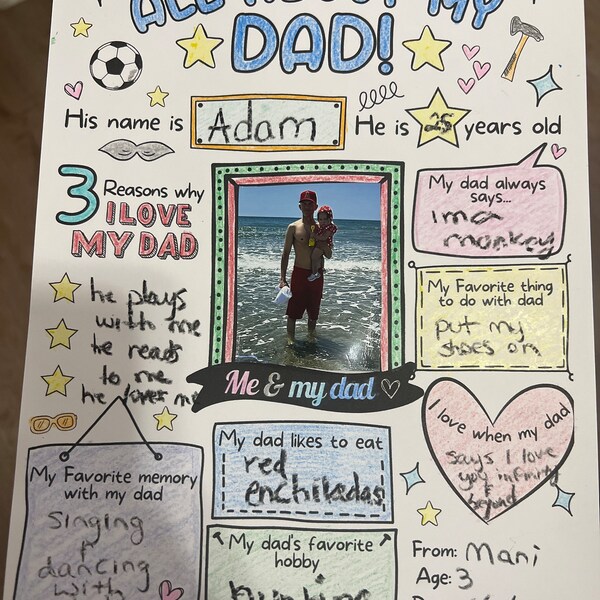 ALL ABOUT MY
DAD!
His name is Adam He is 25 years old
3 Reasons why
I LOVE
MY DAD
he plays
with me
he reads
to me
he loves me
My dad always
says...
im a
monkey
My Favorite thing
to do with dad
put my
shoes on
Me & my dad
My Favorite memory
with my dad
Singing
&
dancing
with
My dad likes to eat
red
enchiladas
My dad's favorite
hobby
hunting
I love when my dad
says I love
you infinity
&
beyond
From: Mani
Age: 3